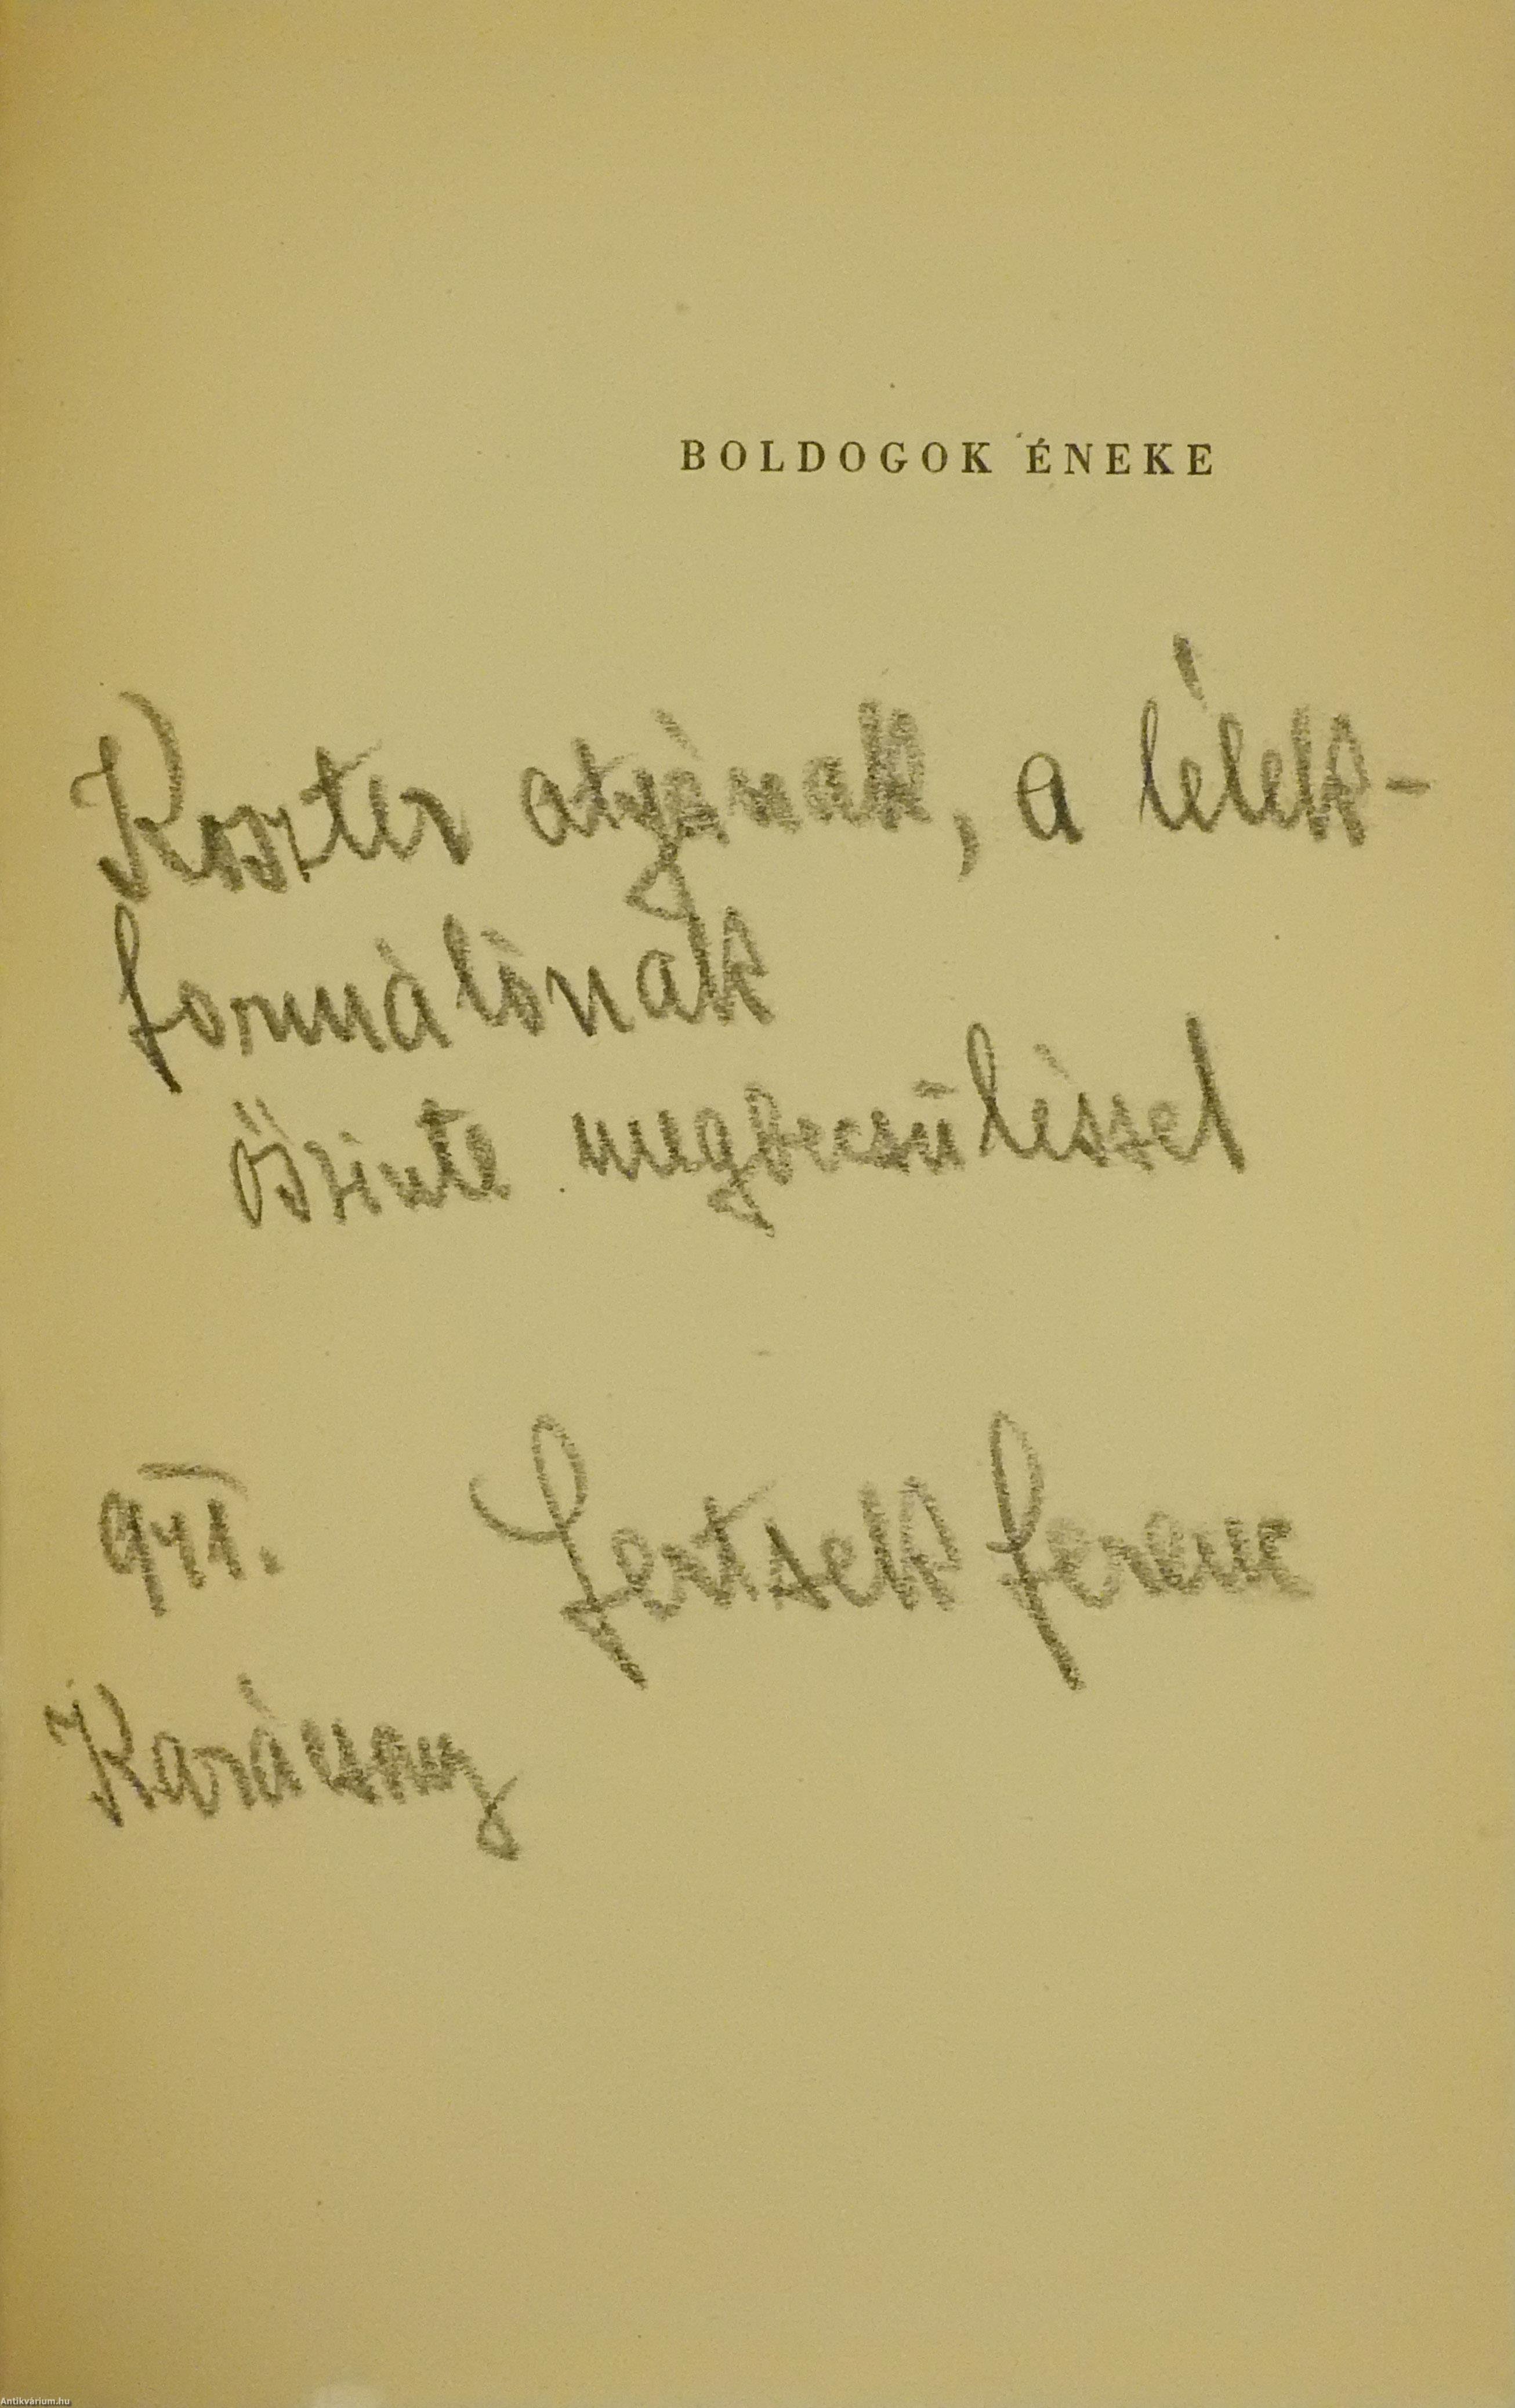 BOLDOGOK ÉNEKE
Koszter atyának, a lélek-
formálónak
őszinte megbecsüléssel
941. Fertsek Ferenc
Karácsony
Antikvárium.hu